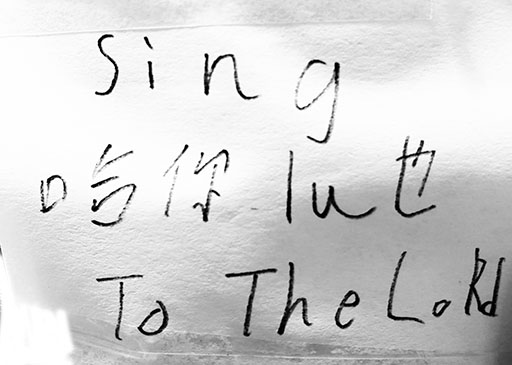 Sing
哈你lu也
To The LoRd